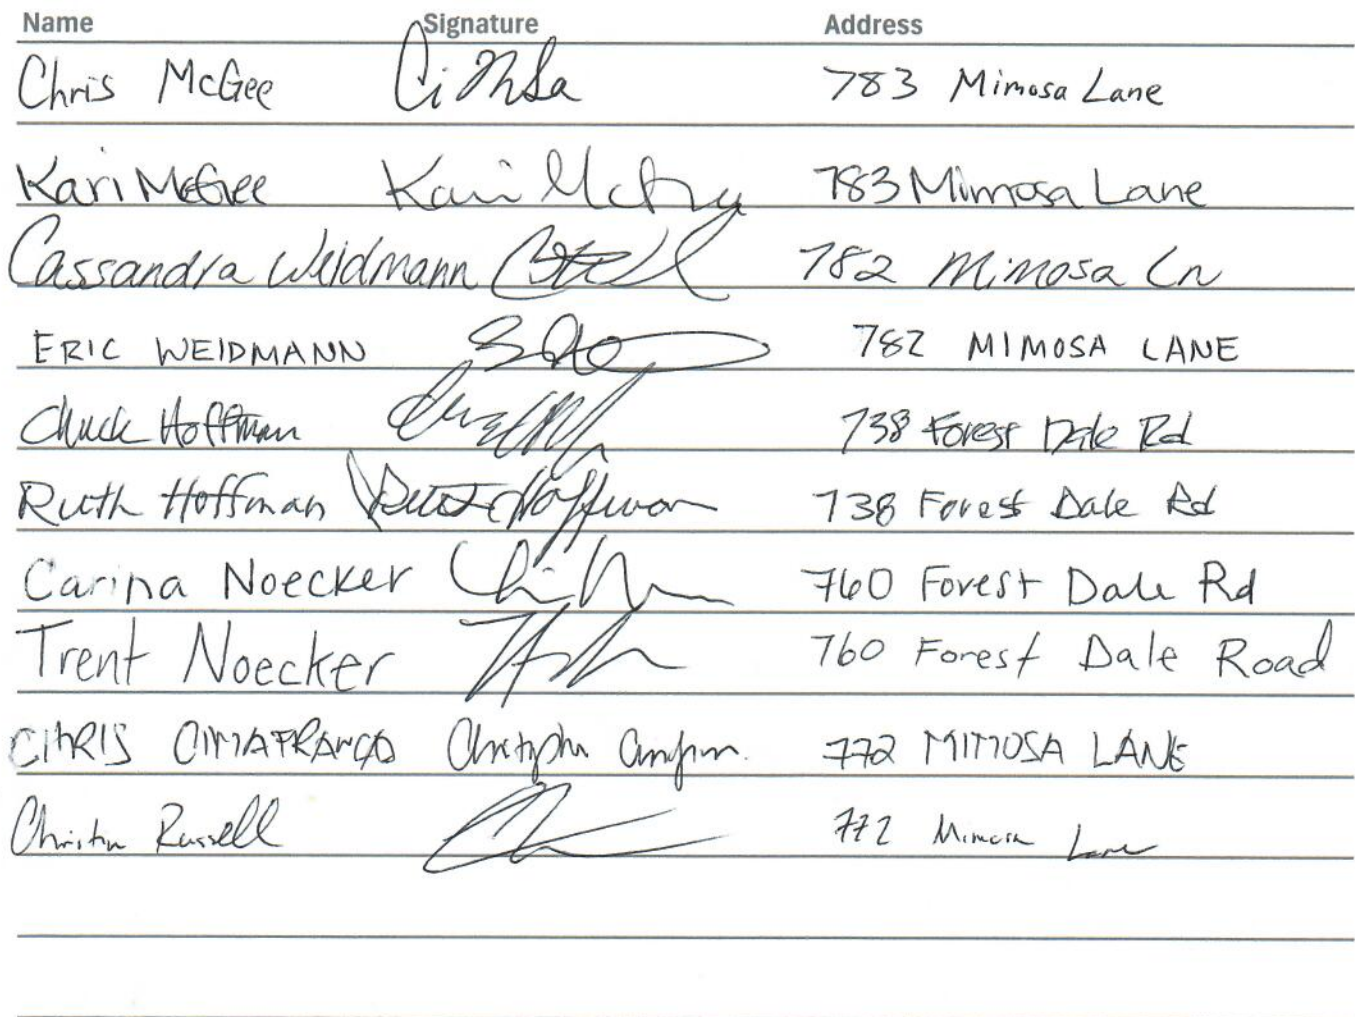 Name Signature Address
Chris McGee 783 Mimosa Lane
Kari McGee Kari McGee 783 Mimosa Lane
Cassandra Weidmann 782 Mimosa Ln
ERIC WEIDMANN 782 MIMOSA LANE
Chuck Hoffman 738 Forest Dale Rd
Ruth Hoffman Ruth Hoffman 738 Forest Dale Rd
Carina Noecker 760 Forest Dale Rd
Trent Noecker 760 Forest Dale Road
CHRIS CIMAFRANCA 772 MIMOSA LANE
Russell 772 Mimosa Lane